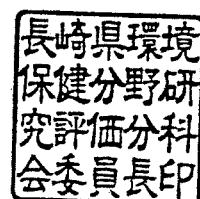 長崎県環境
保健分野研
究評価分科
会委員長印